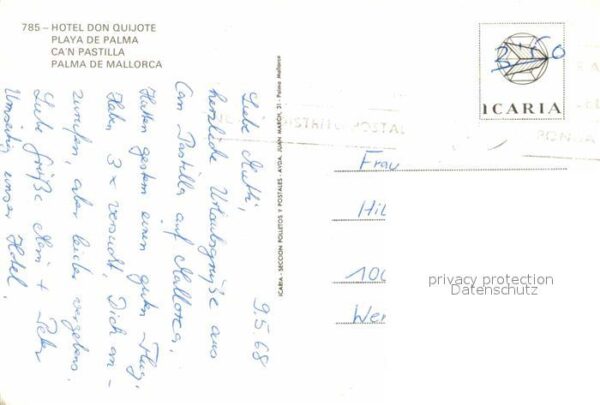 785 – HOTEL DON QUIJOTE
PLAYA DE PALMA
CA'N PASTILLA
PALMA DE MALLORCA
9.5.68
Liebe Mutti,
herzliche Urlaubsgrüße aus
Can Pastilla auf Mallorca.
Hatten gestern einen guten Flug.
Haben 3 x versucht, Dich an-
zurufen, aber leider vergebens.
Liebe Grüße + Peter
Umseitig unser Hotel.
ICARIA - SECCION FOLLETOS Y POSTALES - AVDA. JUAN MARCH, 21 - Palma Mallorca
ICARIA
DISTRITO POSTAL
PONGA
Frau
Hil
100
Wer
privacy protection
Datenschutz